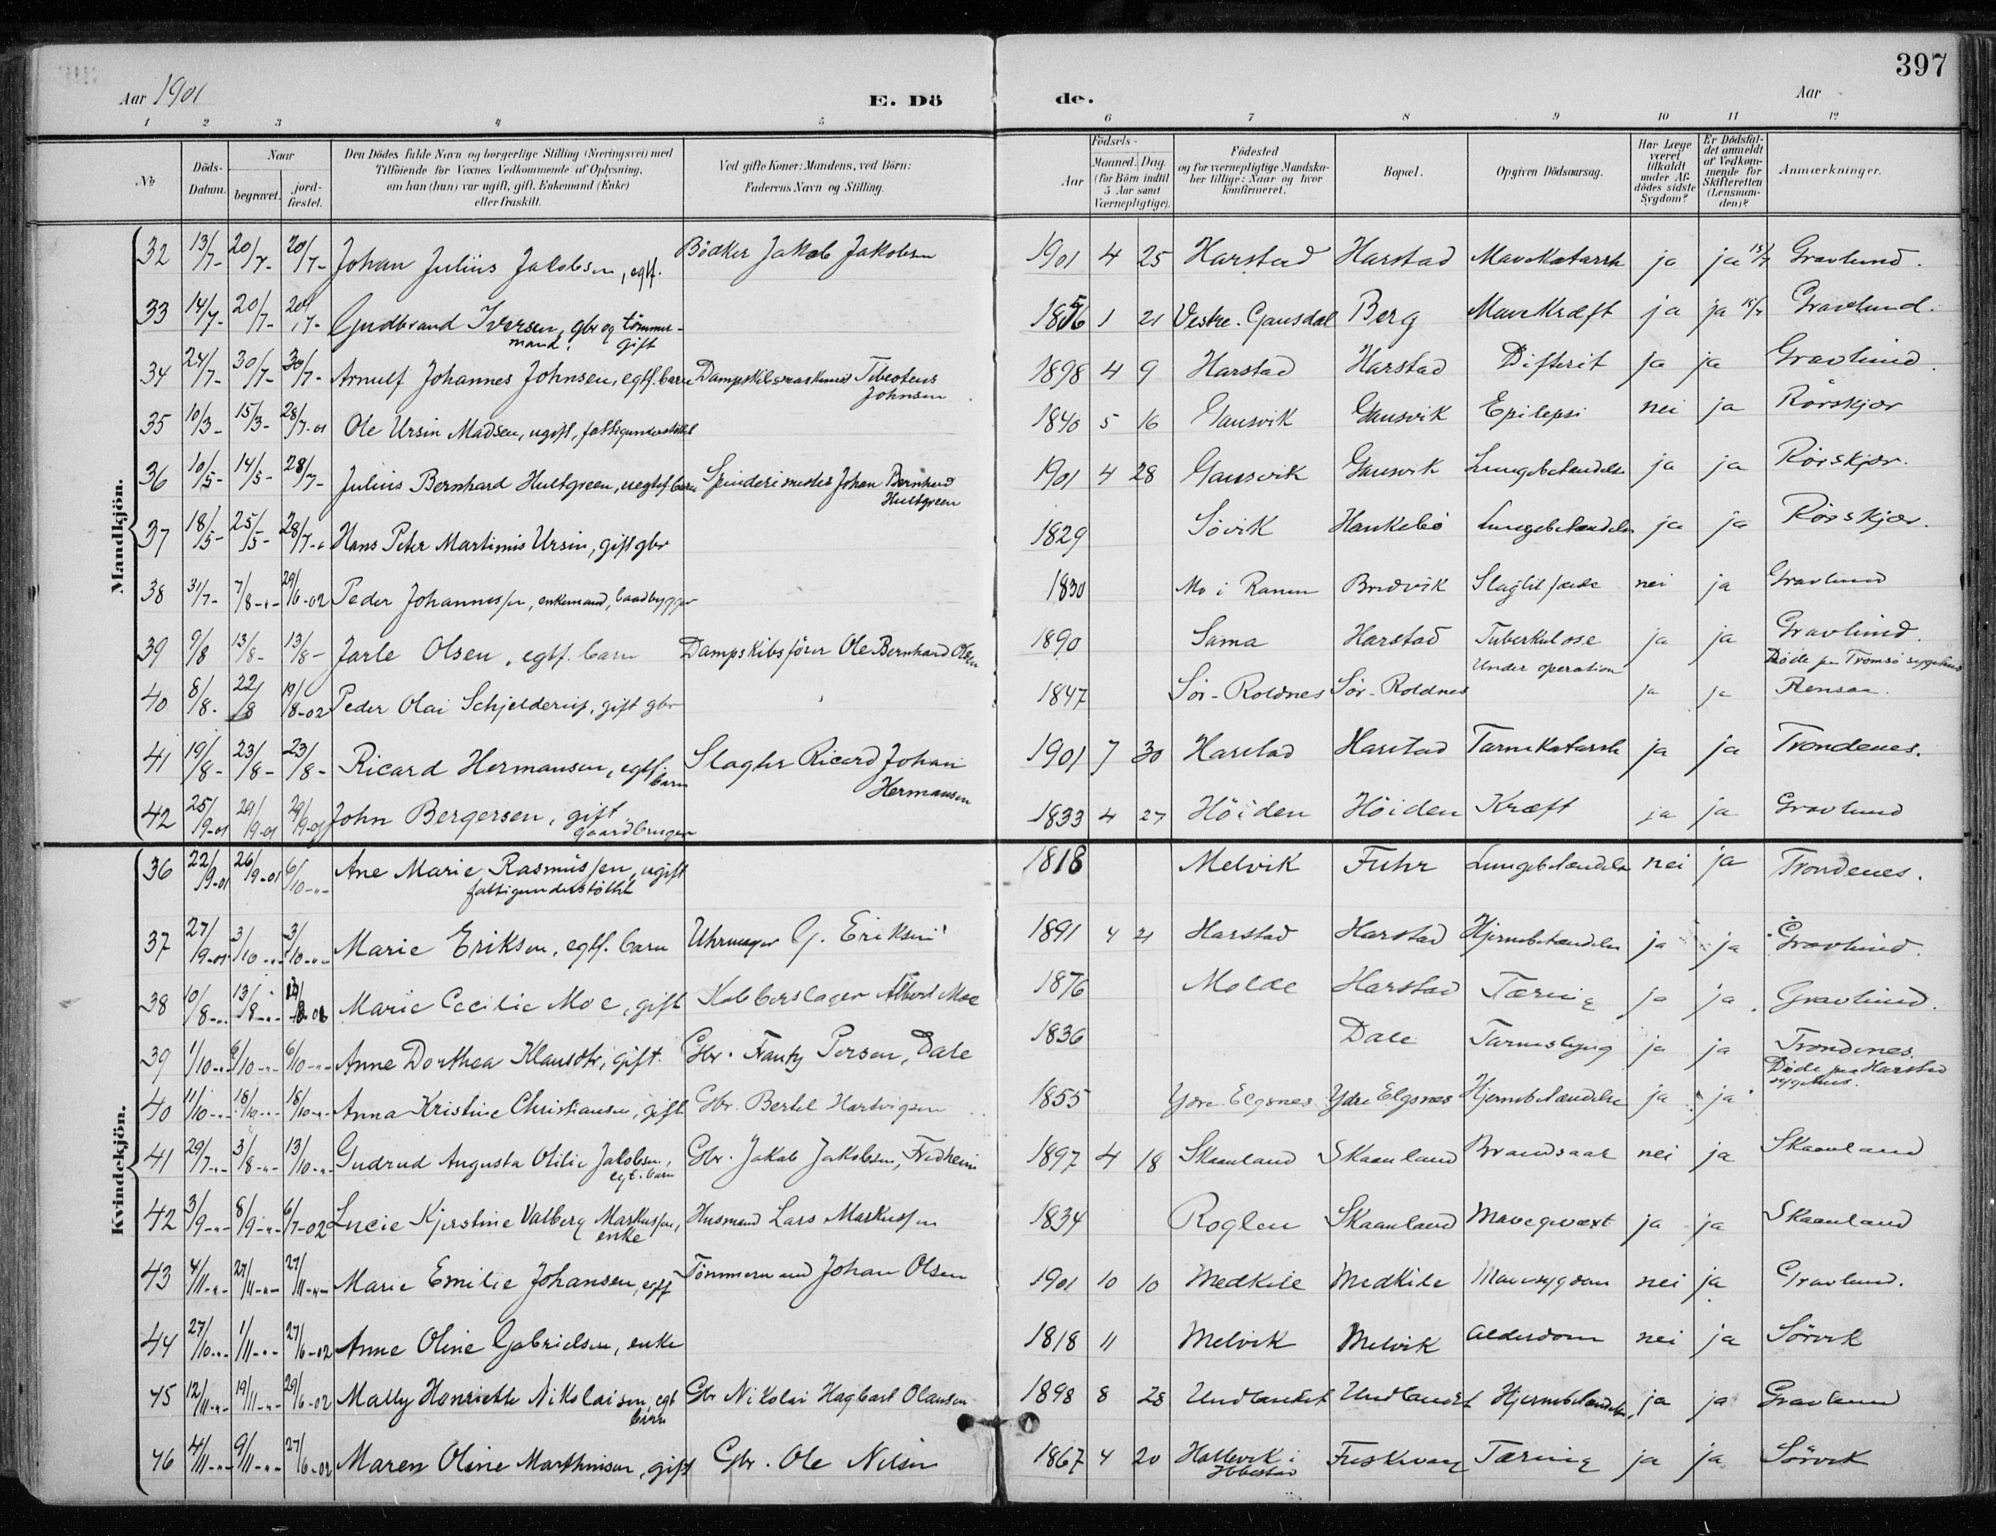 397
Aar 1901 E. Dö de. Aar
1 2 3 4 5 6 7 8 9 10 11 12
No Döds-Datum. Naar begravet. jordfæstet. Den Dödes fulde Navn og borgerlige Stilling (Næringsvei) med Tilföiende for Voxnes Vedkommende af Oplysning, om han (hun) var ugift, gift, Enkemand (Enke) eller fraskilt. Ved gifte Koner: Mandens, ved Börn: Faderens Navn og Stilling. Födsels- Aar Maaned. Dag. (for Börn indtil 5 Aar samt Værnepligtige). Födested og for værnepligtige Mandskaber tillige: Naar og hvor konfirmeret. Bopæl. Opgiven Dödsaarsag. Har Læge været tilkaldt under Afdödes sidste Sygdom? Er Dödsfaldet anmeldt af Vedkommende for Skifteretten (Lensmanden)? Anmærkninger.
Mandkjön.
32 13/7- 20/7- 20/7- Johan Julius Jakobsen, egtf. Bödker Jakob Jakobsen 1901 4 25 Harstad Harstad Mavekatarrh ja ja 15/7 Gravlund.
33 14/7- 20/7- 20/7- Gudbrand Iversen, gbr og tömmermand. gift 1856 1 21 Vestre. Gausdal Berg Mavekræft ja ja 15/7 Gravlund.
34 24/7- 30/7- 30/7- Arnulf Johannes Johnsen, egtf. barn Johnsen 1898 4 9 Harstad Harstad Difterit ja ja Gravlund.
35 10/3- 15/3- 28/7-01 Ole Ursin Madsen, ugift, fattigunderstöttet 1840 5 16 Gausvik Gausvik Epilepsi nei ja Rörskjær
36 10/5- 14/5- 28/7- Julius Bernhard Hultgreen, uegtef barn Spinderimester Johan Bernhard Hultgreen 1901 4 28 Gausvik Gausvik Lungebetændelse ja ja Rörskjær.
37 18/5- 25/5- 28/7-" Hans Peter Martinus Ursin, gift gbr 1829 Sövik Haukebö Lungebetændelse ja ja Rörskjær.
38 31/7- 7/8-"- 29/6-02 Peder Johannessen, enkemand, baadbygger 1830 Mo i Ranen Bredvik Slagtilfælde nei ja Gravlund
39 9/8 13/8- 13/8- Jarle Olsen, egtf. barn Dampskibsförer Ole Bernhard Olsen 1890 Sama Harstad Tuberkulose ja ja Gravlund.
40 8/8- 22/8 19/8-02 Peder Olai Schjelderup, gift gbr 1847 Sör-Roldnes Sör-Roldnes Under operation ja ja Döde paa Tromsö sygehus
41 19/8- 23/8- 23/8- Ricard Hermansen, egtf. barn Slagter Ricard Johan Hermansen 1901 7 30 Harstad Harstad Tarmkatarrh ja ja Trondenes.
42 25/9-01 29/9-01 29/9-01 John Bergersen, gift gaardbruger 1833 4 27 Höiden Höiden Kræft ja ja Gravlund
Kvindekjön.
36 22/9-01 26/9-01 6/10-"- Ane Marie Rasmussen, ugift fattigunderstöttet 1818 Melvik Fuhr Lungebetændelse nei ja Trondenes.
37 27/9-01 3/10-"- 3/10-"- Marie Eriksen, egtf. barn Uhrmager G. Eriksen 1891 4 21 Harstad Harstad Hjernebetændelse ja ja Gravlund.
38 10/8-"- 13/8-"- Marie Cecilie Moe, gift Kobberslager Albert Moe 1876 Molde Harstad Tæring ja ja Gravlund.
39 1/10-"- 6/10-"- 6/10-"- Anne Dorthea Klausdtr, gift. Gbr. Frantz Persen, Dale 1836 Dale Tarmslyng ja ja Trondenes.
40 11/10-"- 18/10-"- 18/10-"- Anna Kristine Christiansen, gift Gbr. Bertel Hartvigsen 1855 Ydre Elgsnes Ydre Elgsnes Hjernebetændelse ja ja Döde paa Harstad sygehus.
41 29/7-"- 3/8-"- 13/10-"- Gudrud Augusta Otilie Jakobsen, egt. barn Gbr. Jakob Jakobsen, Fredheim 1897 4 18 Skaanland Skaanland Brandsaar nei ja Skaanland
42 3/9-"- 8/9-"- 6/7-02 Lucie Kjerstine Valberg Markussen, enke Husmand Lars Markussen 1834 Roglen Skaanland Mavegvæxt ja ja Skaanland
43 4/11-"- 27/11-"- 27/11-"- Marie Emilie Johansen, egtf Tömmermand Johan Olsen 1901 10 10 Medkile Medkile Mavesygdom nei ja Gravlund.
44 27/10-"- 1/11-"- 27/6-02 Anne Oline Gabrielsen, enke 1818 11 Melvik Melvik Alderdom nei ja Sörvik
45 12/11-"- 19/11-"- 29/6-02 Mally Henriette Nikolaisen, egt barn Gbr Nikolai Hagbart Olausen 1898 8 28 Undlandet Undlandet Hjernebetændelse, ja ja Gravlund
46 4/11-"- 9/11-"- 27/6-02 Maren Oline Marthinisen, gift Gbr. Ole Nilsen 1867 4 20 Hallevik i Ibbestad Fuskevaag Tæring ja ja Sörvik